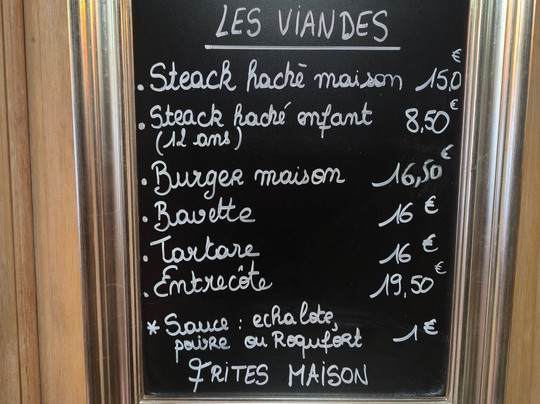 LES VIANDES
. Steack haché maison 15,0 €
. Steack haché enfant 8,50 €
(12 ans)
. Burger maison 16,50 €
. Bavette 16 €
. Tartare 16 €
. Entrecôte 19,50 €
* Sauce : echalote, 1 €
poivre ou Roquefort
FRITES MAISON